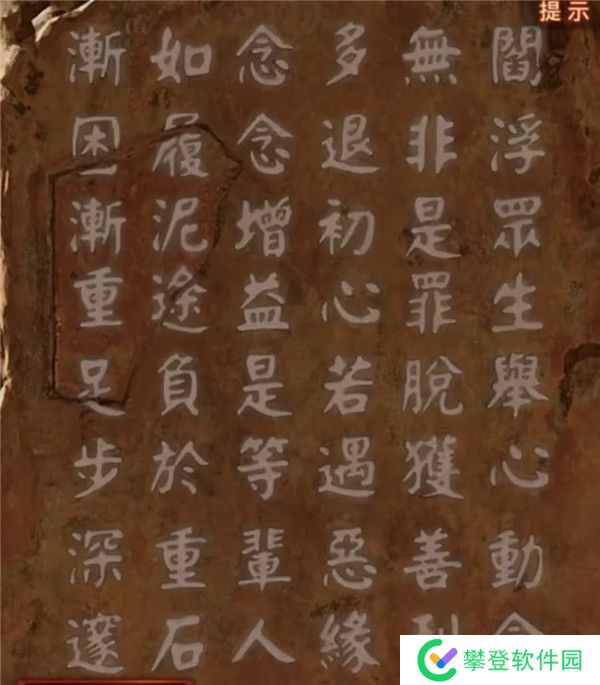 提示
閻浮眾生舉心動
無非是罪脫獲善
多退初心若遇惡緣
念念增益是等輩人
如履泥途負於重石
漸困漸重足步深邃
攀登软件园